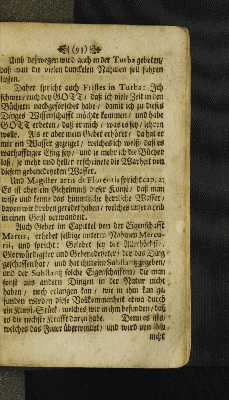 (93)
Umb deßwegen wird auch in der Turba gebeten/
daß man die vielen dunckelen Nahmen soll fahren
lassen.
Daher spricht auch Fristes in Turba: Ich
schwere euch bey GOTT/ daß ich viele Zeit in den
Büchern nachgeforschet habe/ damit ich zu dieses
Dinges Wissenschafft möchte kommen/ und habe
GOTT erbeten/ daß er mich/ was es sey/ lehren
wolle. Als er aber mein Gebet erhöret/ da hat er
mir ein Wasser gezeiget/ welches ich weiß/ daß es
warhafftiger Essig sey/ und je mehr ich die Bücher
laß/ je mehr und heller erscheinete die Warheit von
diesem gebenedeyeten Wasser.
Und Magister artis de Florentia spricht cap. 2:
Es ist aber ein Geheimniß dieser Kunst/ daß man
wisse und kenne das himmlische herrliche Wasser/
davon wir droben geredet haben/ welches unser
in einen Geist verwandelt.
Auch Geber im Capittel von der Eigenschafft
Martis, erhebet selbige unterm Nahmen Mercurii,
und spricht: Gelobet sey der Allerhöchste/
Glorwürdigster und Gebenedeyeter/ der das Ding
geschaffen hat/ und hat ihme eine Substantz gegeben/
und der Substantz solche Eigenschafften/ die man
sonst aus andern Dingen in der Natur nicht
haben/ noch erlangen kan/ wie in ihm kan gefunden
werden diese Vollkommenheit etwa durch
ein Kunst-Stück/ welches wir in ihm befunden/ daß
es die nechste Krafft darzu habe. Denn es ist/
welches das Feuer überwindet/ und wird von ihm
nicht